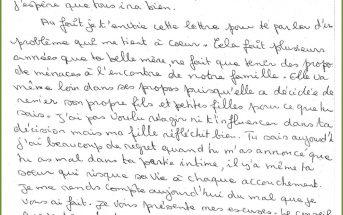 j'espère que tous ira bien.
Au fait je t'envoie cette lettre pour te parler d'un
problème qui me tient à coeur. Cela fait plusieurs
années que ta belle mère, ne fait que tenir des propos
de menaces à l'encontre de notre famille. Elle va
même loin dans ses propos puisqu'elle a décidée de
renier son propre fils et petites filles pour ce que tu
sais. J'ai pas voulu réagir ni t'influencer dans ta
décision mais ma fille réfléchit bien. Tu sais aujourd'
j'ai beaucoup de regret quand tu m'as annoncé que
tu as mal dans ta partie intime, il y'a même ta
soeur qui risque sa vie à chaque accouchement.
Je me rends compte aujourd'hui du mal que je
vous ai fait. Je vous présente mes excuses. Le conseil